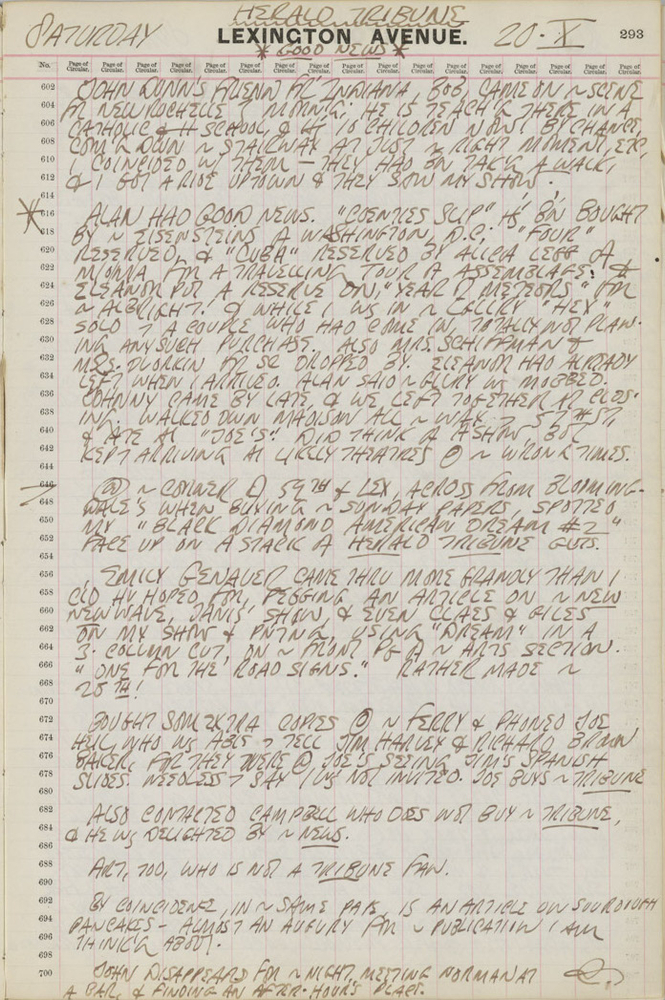 HERALD TRIBUNE
SATURDAY LEXINGTON AVENUE. 20·X 293
* GOOD NEWS *
No. Page of Circular. Page of Circular. Page of Circular. Page of Circular. Page of Circular. Page of Circular. Page of Circular. Page of Circular. Page of Circular. Page of Circular. Page of Circular. Page of Circular. Page of Circular.
602 JOHN DUNN'S FRIEND FR INDIANA, BOB CAME ON ~ SCENE
604 FR NEW ROCHELLE MORNG; HE IS TEACH'G THERE IN A
606 CATHOLIC H SCHOOL, & 10 CHILDREN NOW! BY CHANCE,
608 COM'G DOWN ~ STAIRWAY AT JUST ~ RIGHT MOMENT, ETC,
610 I COINCIDED W THEM — THEY HAD BN TAK'G A WALK,
612 & I GOT A RIDE UPTOWN & THEY SAW MY SHOW.
614
616 ALAN HAD GOOD NEWS. "COENTIES SLIP" HS BN BOUGHT
618 BY ~ EISENSTEINS WASHINGTON, D.C; "FOUR"
620 RESERVED, & "CUBA" RESERVED BY
622 FR A TRAVELLING TOUR ASSEMBLAGE! &
624 ELEANOR PUT A RESERVE ON, "YEAR METEORS" FOR
626 ~ ALBRIGHT! & WHILE I WS IN ~ GALLERY "HEX"
628 SOLD A COUPLE WHO HAD COME IN, TOTALLY NOT PLAN-
630 ING ANY SUCH PURCHASE. ALSO MRS. SCHIFFMAN &
632 MRS. DWORKIN DROPPED BY. ELEANOR HAD ALREADY
634 LEFT WHEN I ARRIVED. ALAN SAID ~ GALLERY WS MOBBED.
636 JOHNNY CAME BY LATE, & WE LEFT TOGETHER CLOS-
638 ING. WALKED DOWN MADISON ALL ~ WAY 57TH ST,
640 & ATE AT "JOE'S". DID THINK A SHOW, BUT
642 KEPT ARRIVING AT LIKELY THEATRES @ ~ WRONG TIMES.
644
646 @ ~ CORNER 59TH & LEX, ACROSS FROM BLOOMING-
648 DALE'S WHEN BUYING ~ SUNDAY PAPERS, SPOTTED
650 MY "BLACK DIAMOND AMERICAN DREAM #2"
652 FACE UP ON A STACK HERALD TRIBUNE GUTS.
654
656 EMILY GENAUER CAME THRU MORE GRANDLY THAN I
658 CLD HV HOPED FOR, PEGGING AN ARTICLE ON ~ NEW
660 NEW WAVE, JANIS' SHOW, & EVEN CLAES & GILES
662 ON MY SHOW & PNTNG, USING "DREAM" IN A
664 3-COLUMN CUT, ON ~ FRONT PG ~ ARTS SECTION.
666 "ONE FOR THE ROAD SIGNS." RATHER MADE ~
668 25TH!
670
672 BOUGHT SOM EXTRA COPIES @ ~ FERRY & PHONED JOE
674 WHO WS ABLE TELL JIM HARVEY & RICHARD BROWN
676 BAKER, FOR THEY WERE @ JOE'S SEEING JIM'S SPANISH
678 SLIDES. NEEDLESS SAY I WS NOT INVITED. JOE BUYS ~ TRIBUNE
680
682 ALSO CONTACTED CAMPBELL WHO DOES NOT BUY ~ TRIBUNE,
684 & HE WS DELIGHTED BY ~ NEWS.
686
688 ART, TOO, WHO IS NOT A TRIBUNE FAN.
690
692 BY COINCIDENCE, IN ~ SAME PAPR, IS AN ARTICLE ON SOURDOUGH
694 PANCAKES — ALMOST AN AUGURY FOR ~ PUBLICATION I AM
696 THINK'G ABOUT.
698
700 JOHN DISAPPEARED FOR ~ NIGHT, MEETING NORMAN AT
A BAR, & FINDING AN AFTER-HOURS PLACE.